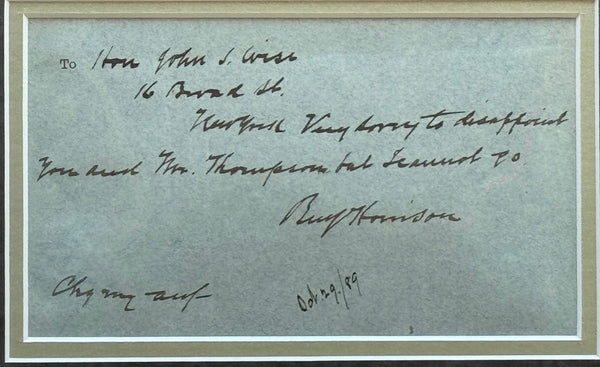 To Hon John S. Wise
16 Broad St.
New York Very sorry to disappoint
you and Mr. Thompson but I cannot go
Benj Harrison
Chg my acct
Oct. 29/89